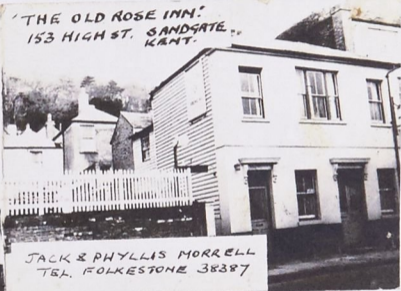 "THE OLD ROSE INN".
153 HIGH ST. SANDGATE
KENT.
JACK & PHYLLIS MORRELL
TEL. FOLKESTONE 38387